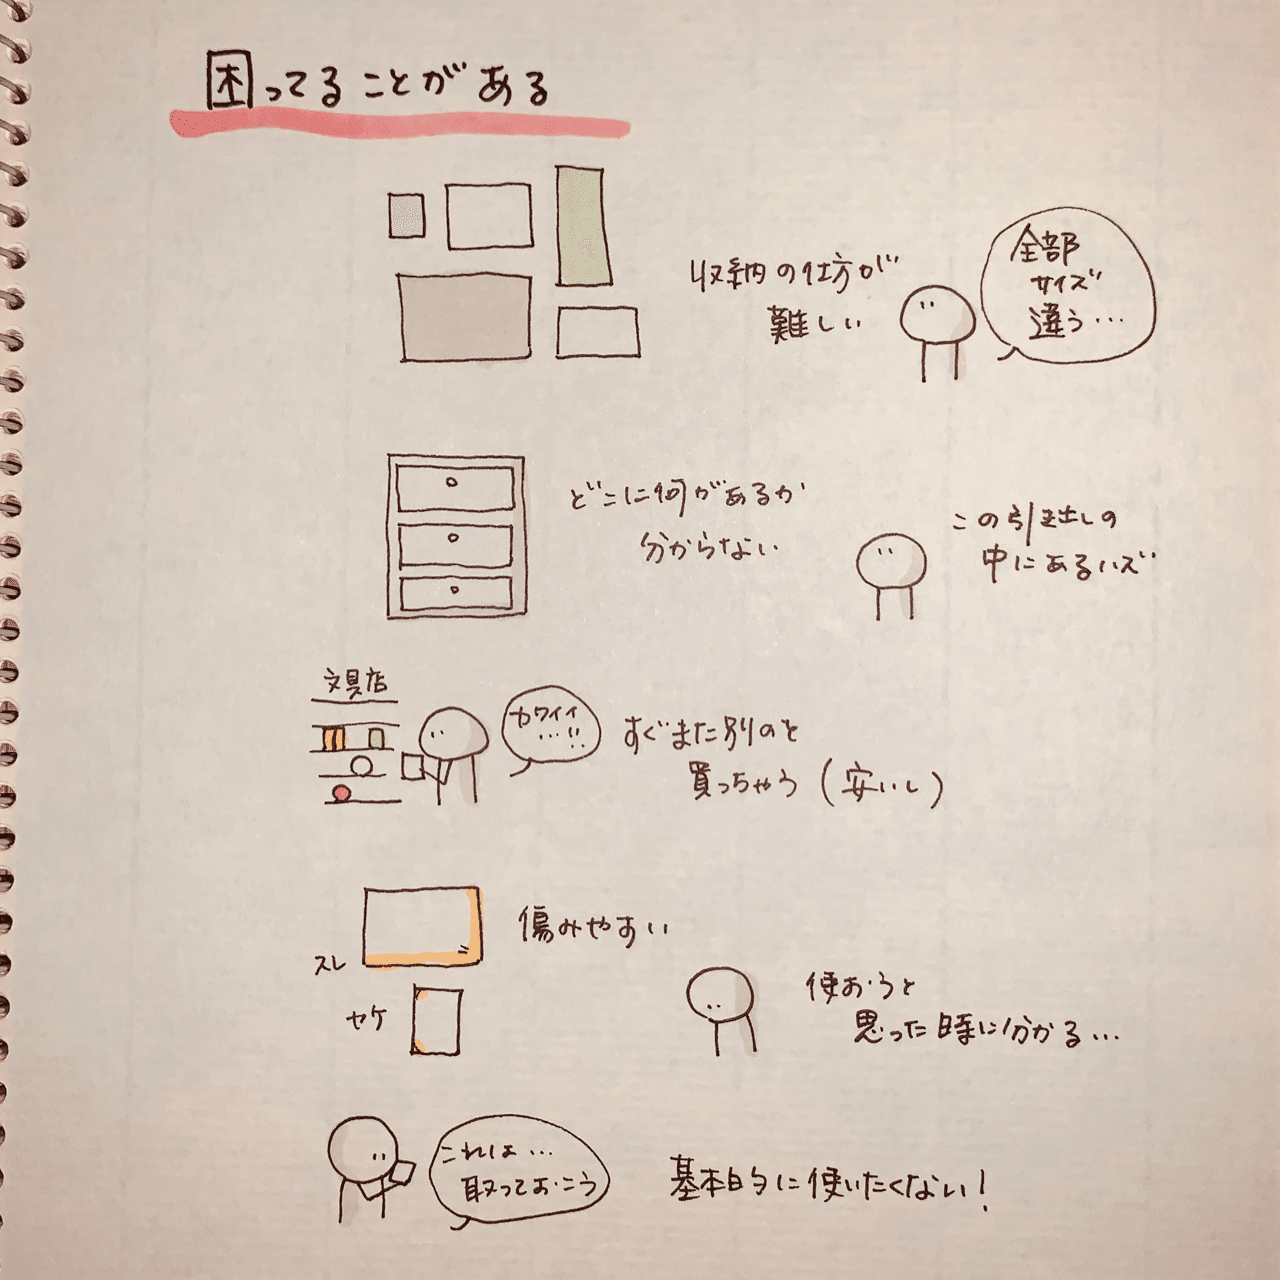 困ってることがある
収納の仕方が
難しい
全部
サイズ
違う…
どこに何があるか
分からない
この引き出しの
中にあるハズ
文具店
カワイイ
…!!
すぐまた別のと
買っちゃう(安いし)
傷みやすい
スレ
ヤケ
使おうと
思った時に分かる…
これは…
取っておこう
基本的に使いたくない!